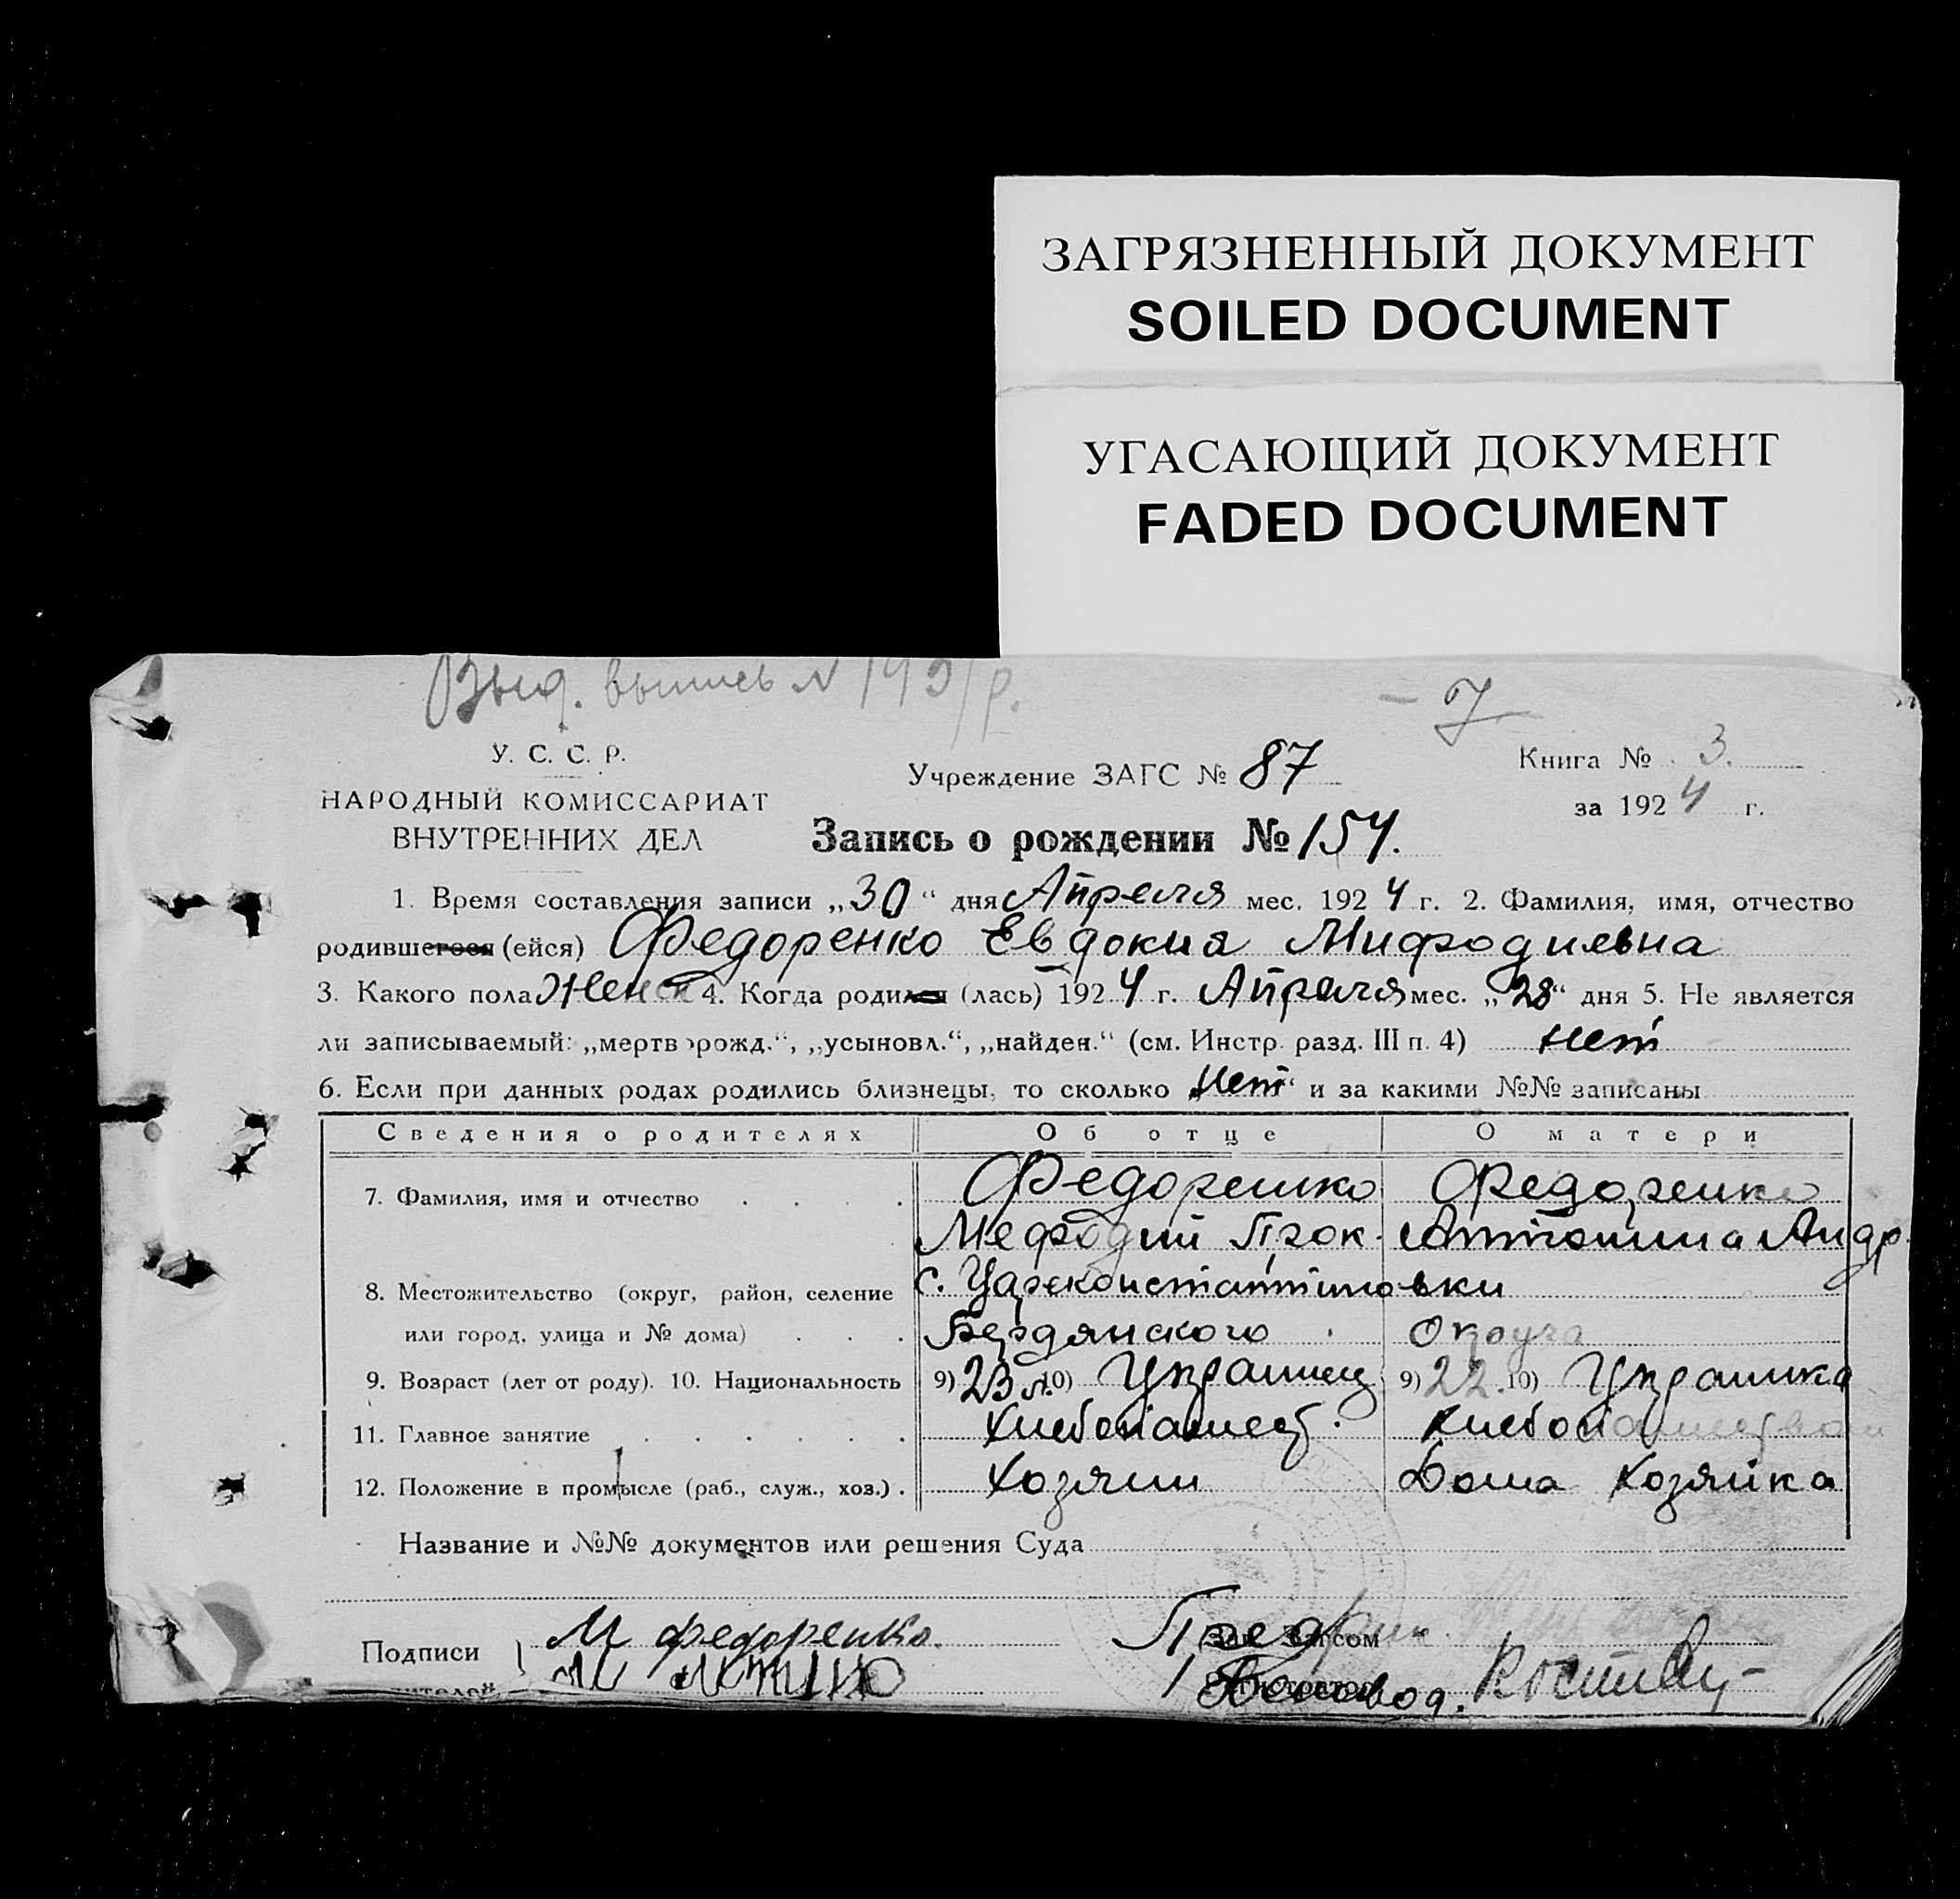 ЗАГРЯЗНЕННЫЙ ДОКУМЕНТ
SOILED DOCUMENT
УГАСАЮЩИЙ ДОКУМЕНТ
FADED DOCUMENT
Выд. выпись N
У. С. С. Р.
НАРОДНЫЙ КОМИССАРИАТ
ВНУТРЕННИХ ДЕЛ
Учреждение ЗАГС № 87
Книга № 3.
за 1924 г.
Запись о рождении № 154.
1. Время составления записи „30“ дня Апреля мес. 1924 г. 2. Фамилия, имя, отчество
родившегося (ейся) Федоренко Евдокия Мифодиевна
3. Какого пола Женск 4. Когда родился (лась) 1924 г. Апреля мес. „28“ дня 5. Не является
ли записываемый: „мертворожд.“, „усыновл.“, „найден.“ (см. Инстр. разд. III п. 4) нет
6. Если при данных родах родились близнецы, то сколько нет и за какими №№ записаны
Сведения о родителях Об отце О матери
7. Фамилия, имя и отчество Федоренко Федоренко
Мефодий Прок. Антонина Андр.
8. Местожительство (округ, район, селение с. Цареконстантиновки
или город, улица и № дома) Бердянского Округа
9. Возраст (лет от роду). 10. Национальность 9) 23 л. 10) Украинец 9) 22. 10) Украинка
11. Главное занятие Хлебопашест. Хлебопашеством
12. Положение в промысле (раб., служ., хоз.). Хозяин Дома Хозяйка
Название и №№ документов или решения Суда
Подписи М Федоренко.
Зав. Загсом
Делоквод.